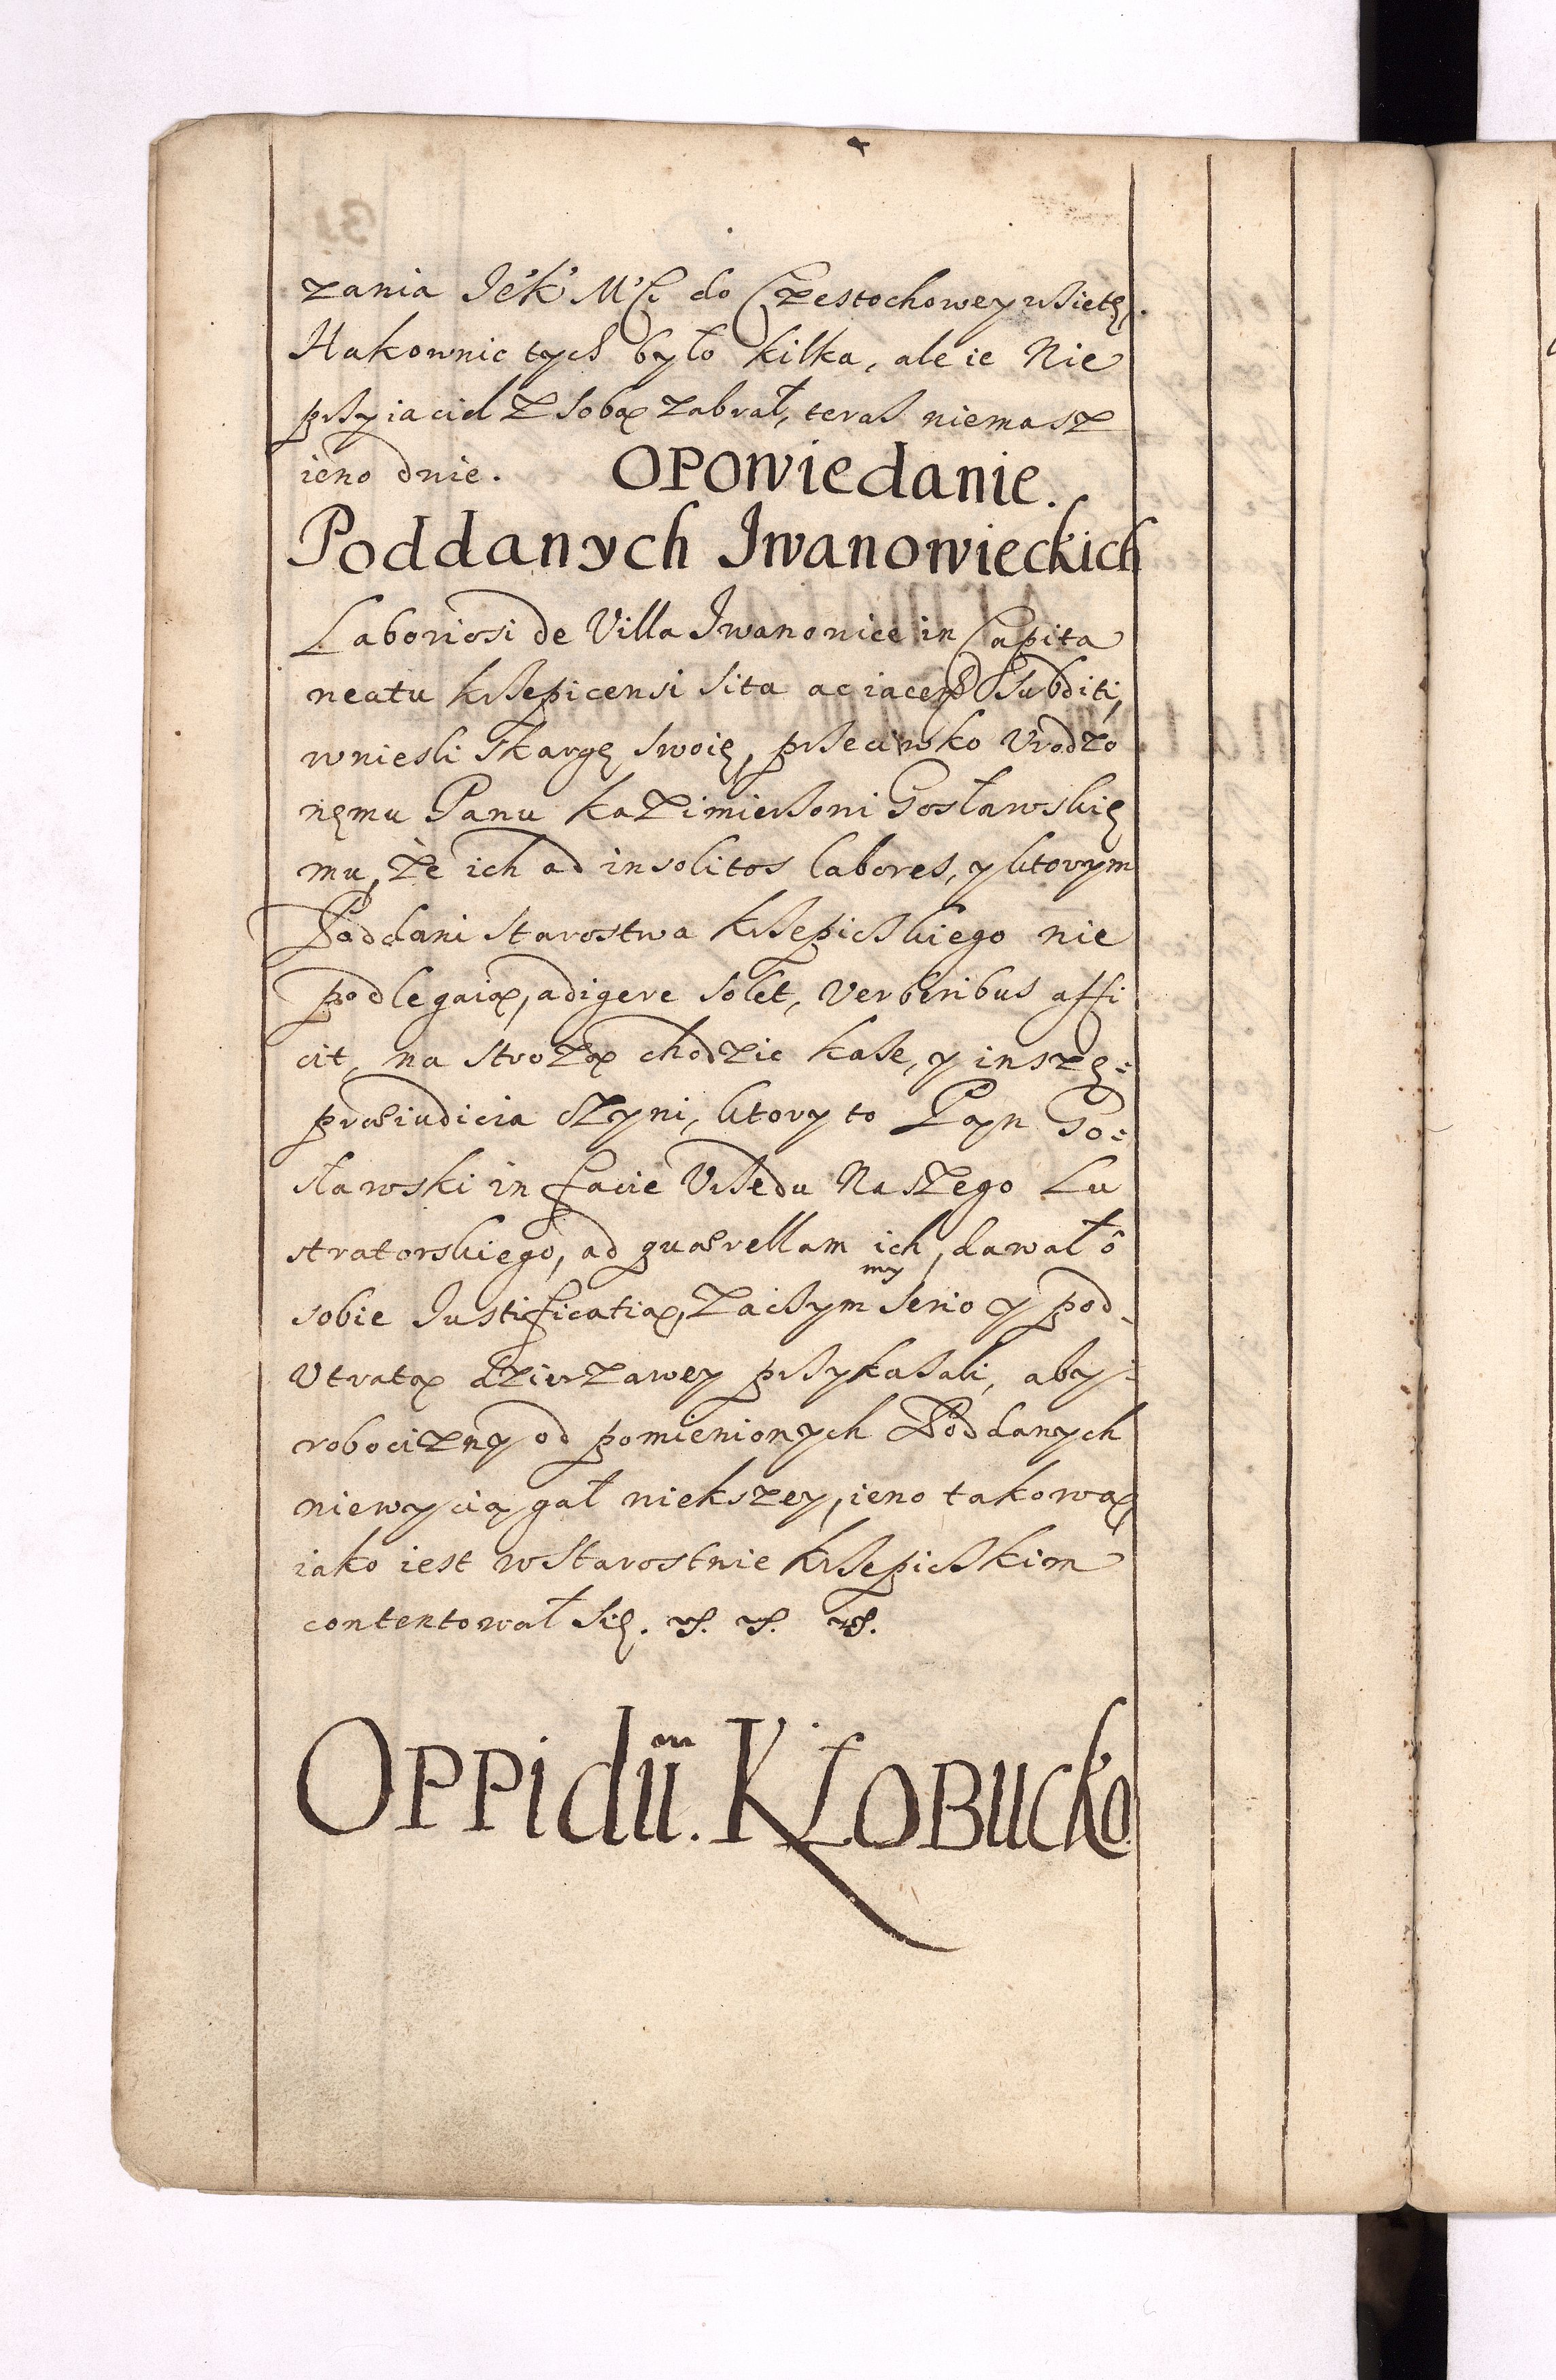 zania Jek Mści do Czestochowey wzietę.
Hakownic tych było kilka, ale ie Nie
przyiaciel z sobą zabrał, teraz niemasz
ieno dwie. OPOWiedanie.
Poddanych Jwanowieckich
Laboriosi de Villa Jwanowice in Capita
neatu krzepicensi sita ac iacens Subditi,
wniesli skargę swoię, przeciwko Vrodzo
nęmu Panu kazimierzoni Gosławskię
mu, że ich ad insolitos labores, y ktorym
Poddani starostwa krzepickiego nie
podlegaią, adigere solet, verberibus affi
cit, na strożą chodzic każe, y inszę:
præiudicia czyni, ktory to Pan Go:
sławski in facie Vrzędu Naszego Lu
stratorskiego, ad quærellam ich, dawał ô
sobie Justificatią, zaczym my serio y pod
Vtratą dzierżawey przykazali, aby:
robocizny od pomienionych Poddanych
niewyciągał wiekszey, ieno takową
iako iest w starostwie krzepickim
contentował się.
OPPidum. KŁOBUCko.